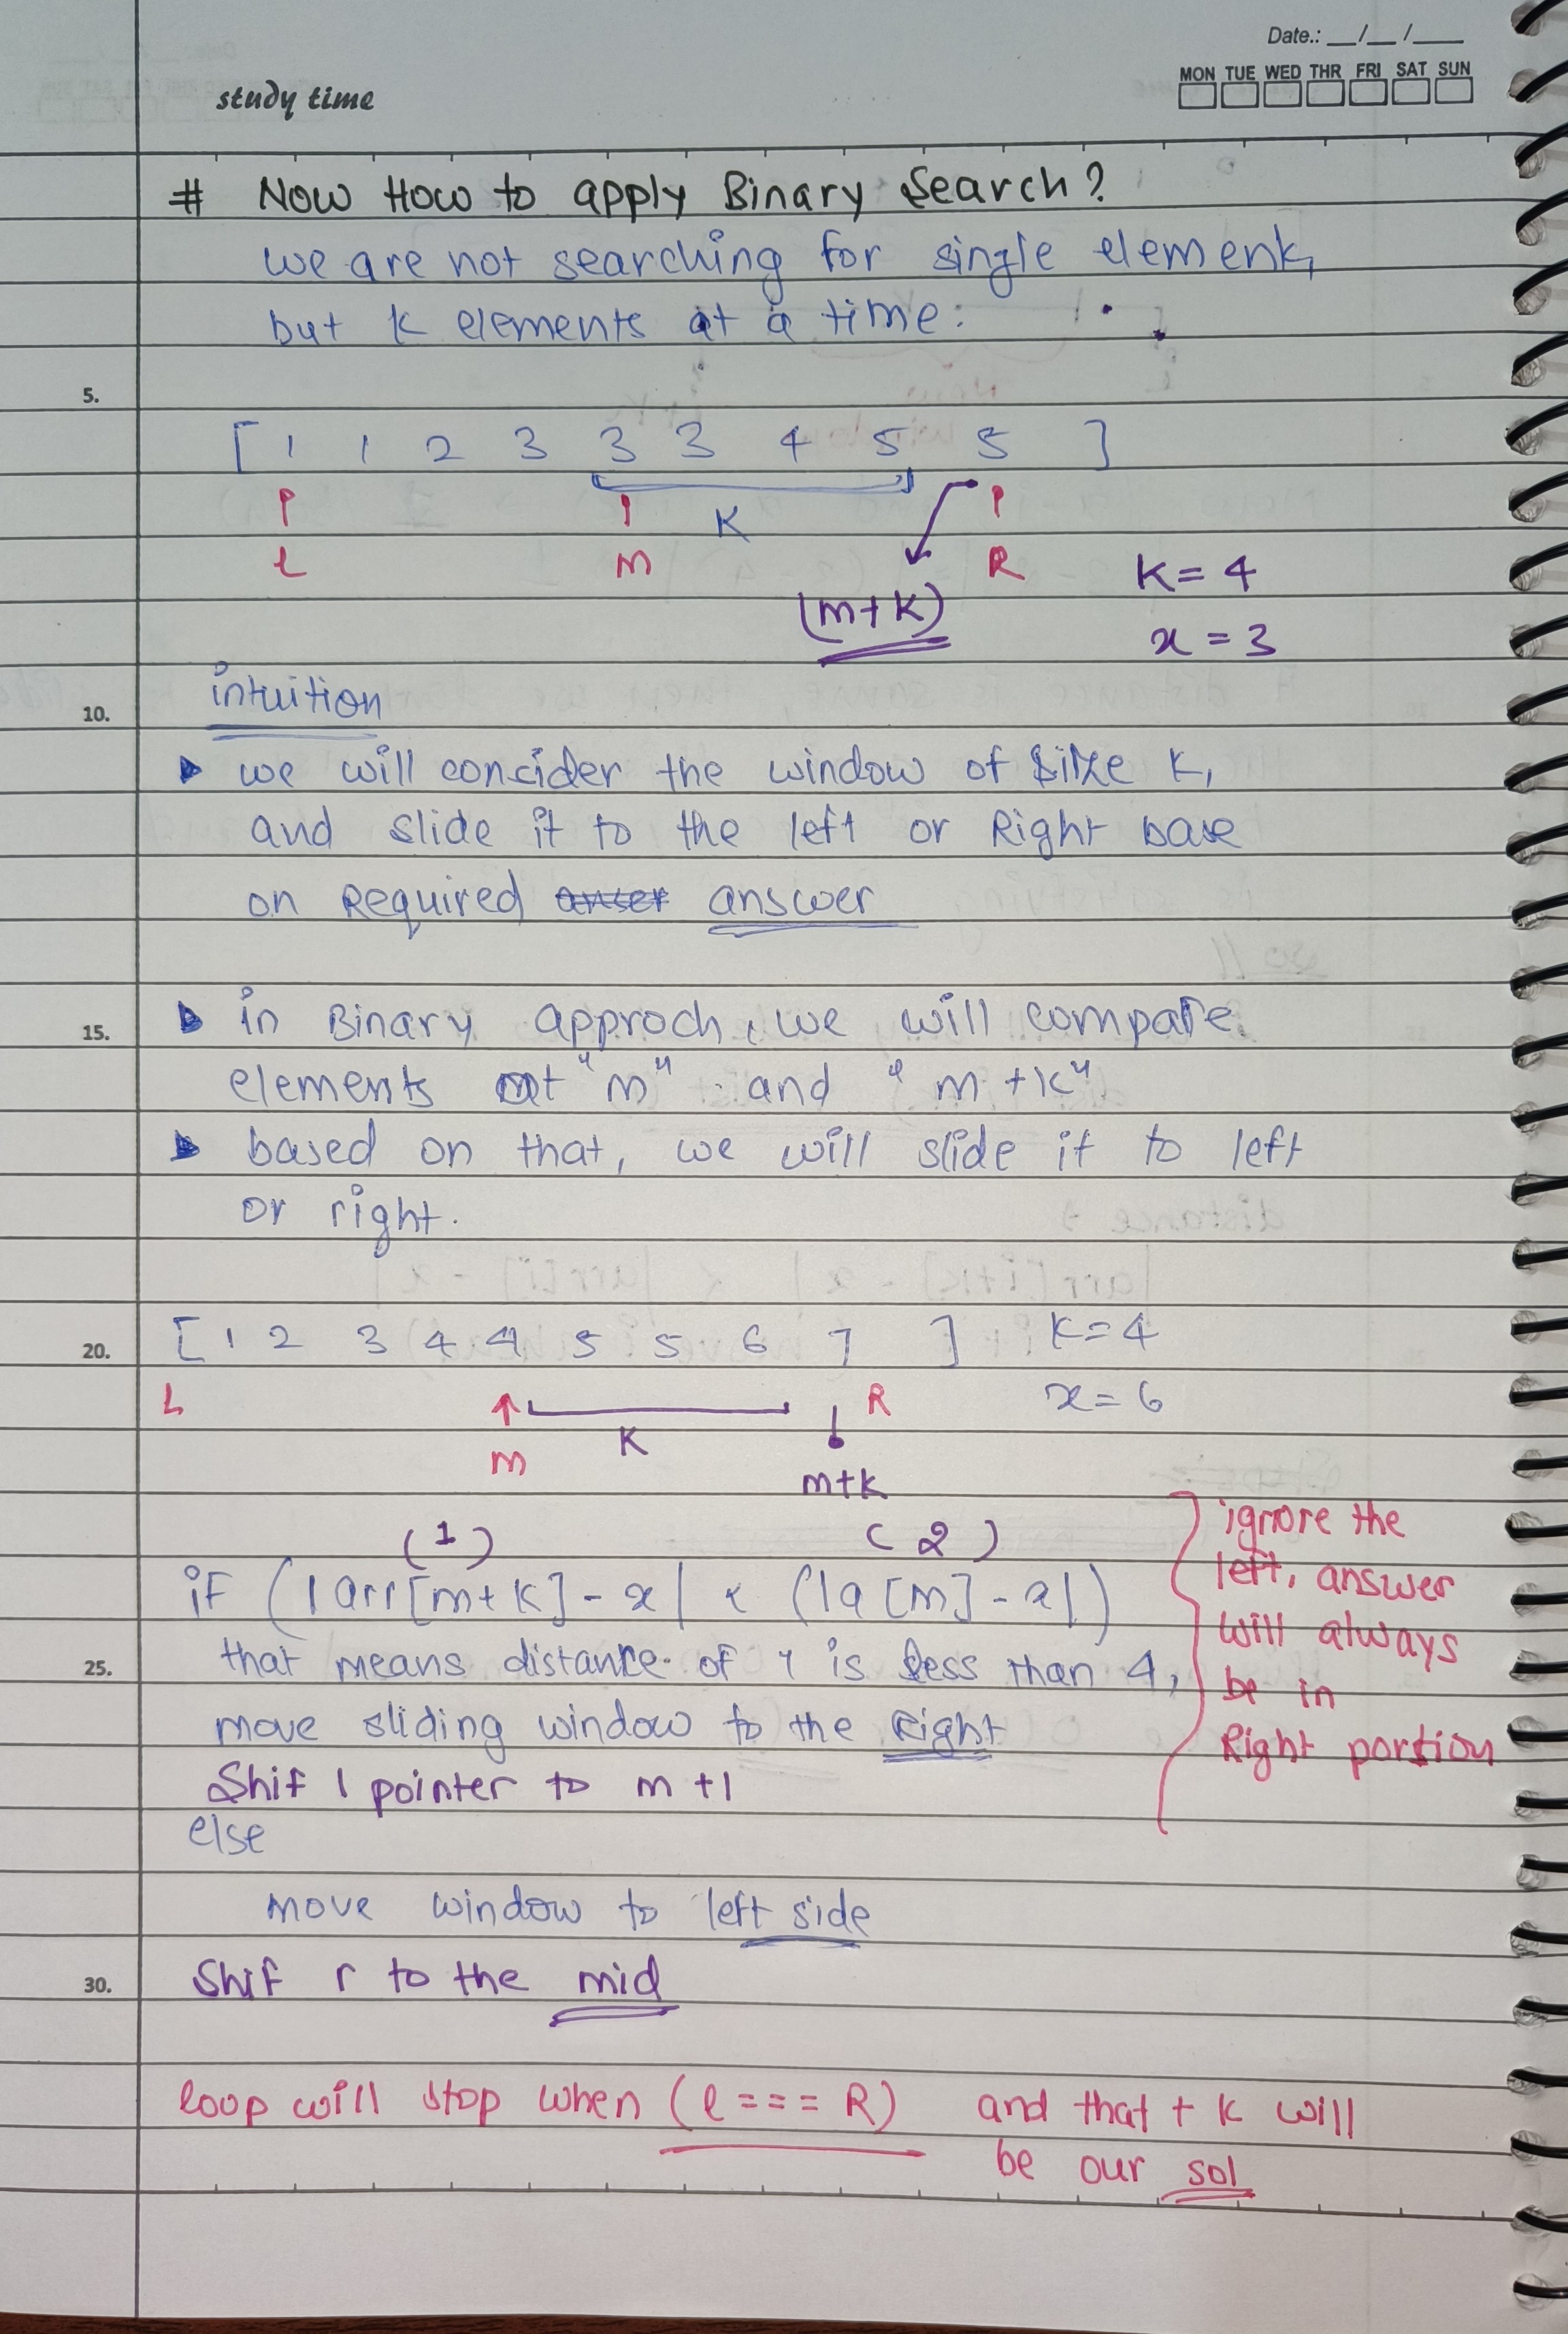 Date.: __/__/____
MON TUE WED THR FRI SAT SUN
study time
# Now How to apply Binary Search?
we are not searching for single element,
but k elements at a time.
5.
[ 1 1 2 3 3 3 4 5 5 ]
K
l m R
(m+k)
K = 4
x = 3
intuition
10.
we will consider the window of size K,
and slide it to the left or Right base
on Required answer
15.
in Binary approch, we will compare
elements at "m" and "m+k"
based on that, we will slide it to left
or right.
20.
[ 1 2 3 4 4 5 5 6 7 ] K=4
L R x=6
K
m
m+k
(1) (2)
if (|arr[m+k]-x| < (|a[m]-x|)
25.
that means distance of 7 is less than 4,
move sliding window to the Right
Shif l pointer to m+1
ignore the
left, answer
will always
be in
Right portion
else
move window to left side
30.
Shif r to the mid
loop will stop when (l === R) and that + k will
be our sol